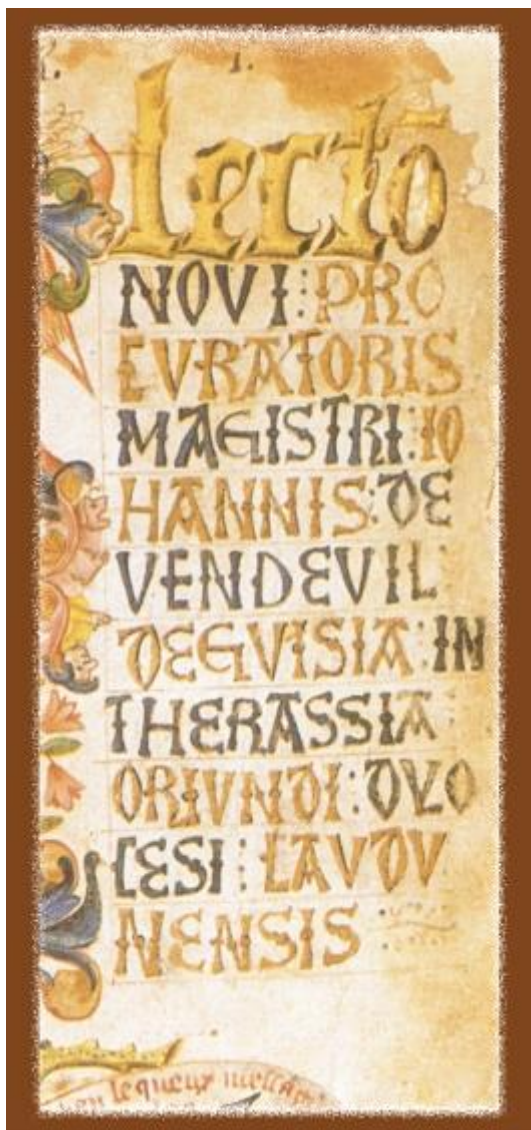 lectō
NOVI : PRO
CVRATORIS
MAGISTRI : IO
HANNIS : DE
VENDEVIL
DEGVISIA : IN
THERASSIA
ORIVNDI : DYO
CESI : LAVDV
NENSIS
lequeux